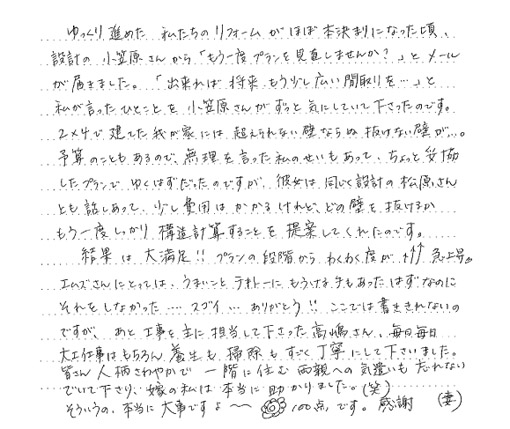 ゆっくり進めた 私たちのリフォームがほぼ本決まりになった頃、
設計の小笠原さんから「もう一度プランを見直しませんか？」とメール
が届きました。「出来れば将来もう少し広い間取りを…」と
私が言ったひとことを小笠原さんがずっと気にしていて下さったのです。
2×4で建てた我が家には超えられない壁ならぬ抜けない壁が…。
予算のこともあるので、無理を言った私のせいもあって、ちょっと妥協
したプランでゆくはずだったのですが、彼女は同じく設計の松原さん
とも話しあって、少し費用はかかるけれど、どの壁を抜けるか
もう一度しっかり構造計算することを提案してくれたのです。
結果は大満足!! プランの段階からわくわく度が↑↑↑ 急上昇。
エムズさんにとっては、うまいことテキトーにもうける手もあったはずなのに
それをしなかった … スゴイ … ありがとう!! ここでは書ききれないの
ですが、あと工事を主に担当して下さった高嶋さん、毎日毎日
大工仕事はもちろん養生も掃除もすごく丁寧にして下さいました。
皆さん人柄さわやかで 一階に住む両親への気遣いも忘れない
でいて下さり、嫁の私は本当に助かりました。(笑)
そういうの、本当に大事ですよ〜〜 100点です。感謝 (妻)